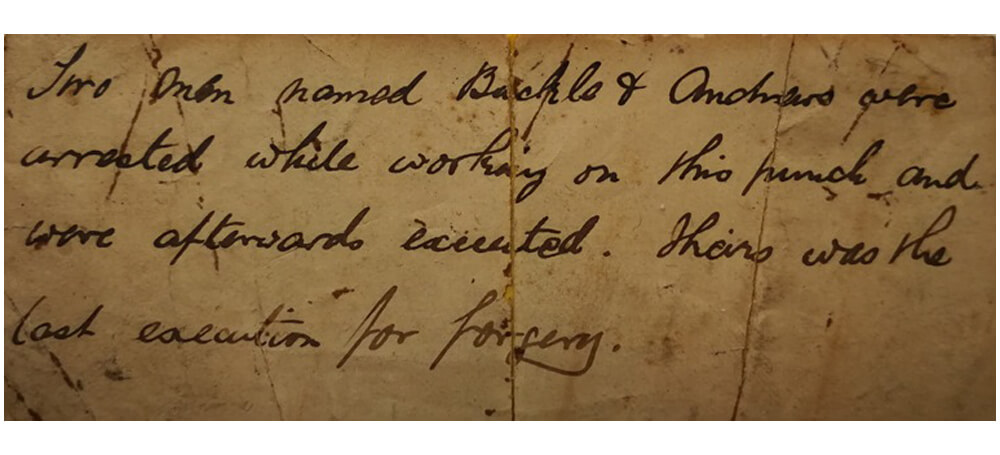 Two men named Buckle & Andrews were
arrested while working on this punch and
were afterwards executed. Theirs was the
last execution for forgery.